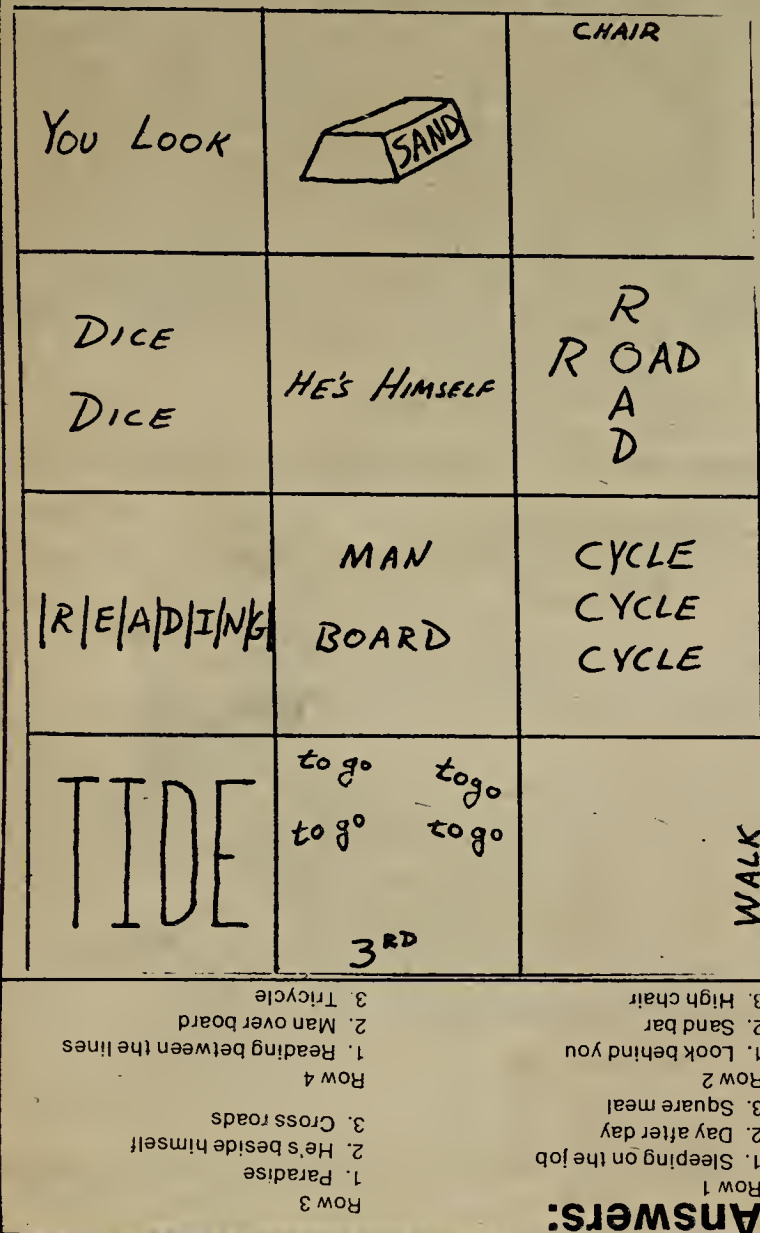 You Look
SAND
CHAIR
DICE
DICE
HE'S HIMSELF
R
R OAD
A
D
|R|E|A|D|I|N|G|
MAN
BOARD
CYCLE
CYCLE
CYCLE
TIDE
to go to go
to go to go
3RD
WALK
Answers:
Row 1
1. Sleeping on the job
2. Day after day
3. Square meal
Row 2
1. Look behind you
2. Sand bar
3. High chair
Row 3
1. Paradise
2. He's beside himself
3. Cross roads
Row 4
1. Reading between the lines
2. Man over board
3. Tricycle